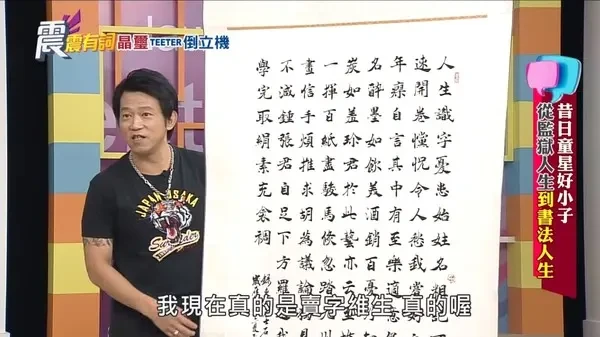 震震有詞
晶璽 TEETER 倒立機
昔日童星好小子
從監獄人生到書法人生
JAPAN OSAKA
人生識字憂患始姓名粗記
速開卷惝怳令人愁我嘗好
年瘳自言其中有至樂適
名醉墨如飲美酒銷百憂
炭如珍君於此藝亦云至
一揮百紙盡駿馬倏忽踏
畫信手煩推求胡為議論
不減鍾張君自足下方羅
學完取絹素充衾裯
我現在真的是賣字維生 真的喔